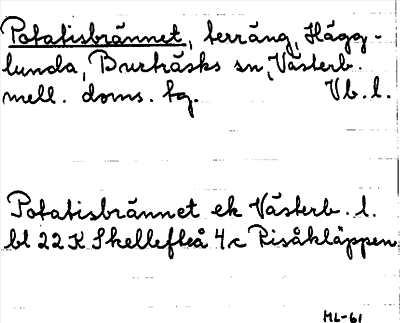 Potatisbrännet, terräng, Hägg-
lunda, Burträsks sn, Västerb.
mell. doms. tg. Vb. l.
Potatisbrännet ek Västerb. l.
bl 22 K Skellefteå 4 c Risåkläppen
ML-61